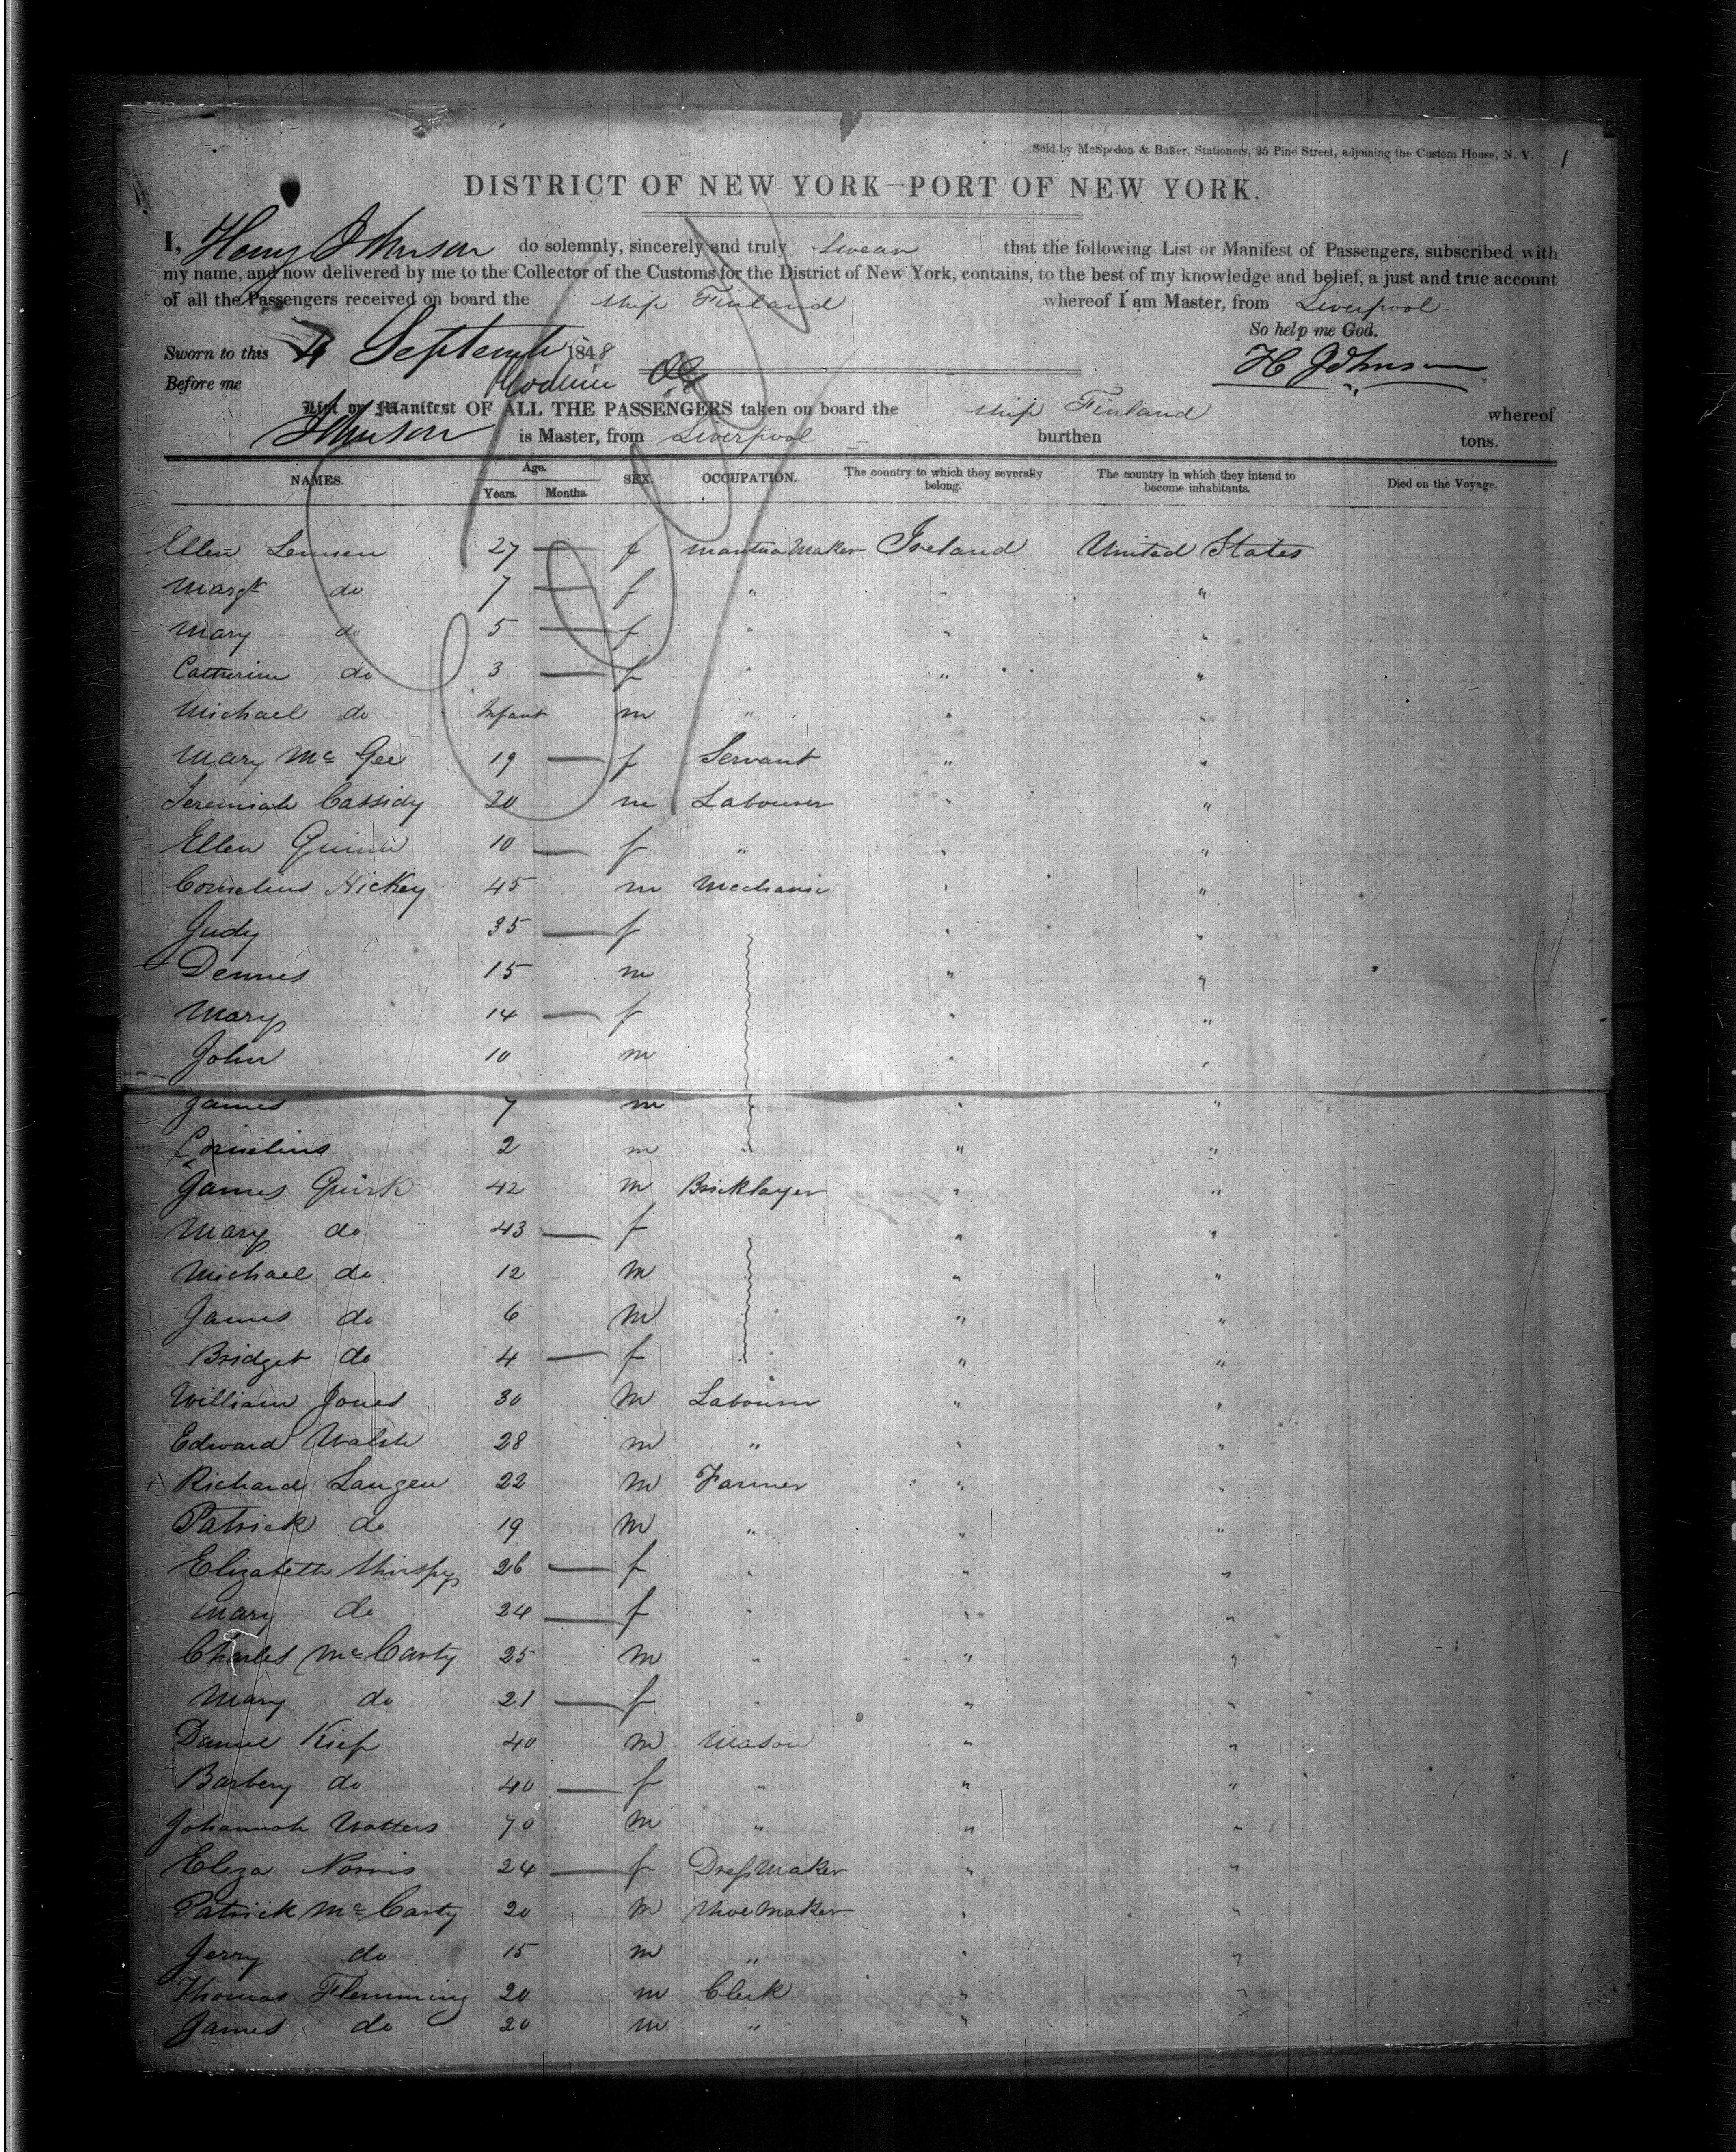 Sold by McSpedon & Baker, Stationers, 25 Pine Street, adjoining the Custom House, N. Y. 1
DISTRICT OF NEW YORK—PORT OF NEW YORK.
I, Henry Johnson do solemnly, sincerely and truly swear that the following List or Manifest of Passengers, subscribed with
my name, and now delivered by me to the Collector of the Customs for the District of New York, contains, to the best of my knowledge and belief, a just and true account
of all the Passengers received on board the ship Finland whereof I am Master, from Liverpool
So help me God.
Sworn to this September 1848
H Johnson
Before me
List or Manifest OF ALL THE PASSENGERS taken on board the ship Finland whereof
Johnson is Master, from Liverpool burthen tons.
NAMES. Age. Years. Months. SEX. OCCUPATION. The country to which they severally belong. The country in which they intend to become inhabitants. Died on the Voyage.
Ellen Lennen 27 — f mantua Maker Ireland United States
Margt do 7 — f " " "
Mary do 5 — f " " "
Catherine do 3 — f " " "
Michael do Infant m " " "
Mary Mc Gee 19 — f Servant " "
Jeremiah Cassidy 20 m Labourer " "
Ellen Quinn 10 — f " " "
Cornelius Hickey 45 m Mechanic " "
Judy 35 — f " "
Dennis 15 m " "
Mary 14 — f " "
John 10 m " "
James 7 m " "
Cornelius 2 m " "
James Quirk 42 m Bricklayer " "
Mary do 43 — f " "
Michael do 12 m " "
James do 6 m " "
Bridget do 4 — f " "
William Jones 30 m Labourer " "
Edward Walsh 28 m " " "
Richard Langen 22 m Farmer " "
Patrick do 19 m " " "
Elizabeth 26 — f " " "
Mary do 24 — f " " "
Charles Mc Carty 25 m " " "
Mary do 21 — f " " "
Daniel Kief 40 m Mason " "
Barbery do 40 — f " " "
Johannah Watters 70 m " " "
Eliza Norris 24 — f Dress Maker " "
Patrick Mc Carty 20 m Shoe Maker " "
Jerry do 15 m " " "
Thomas Flemming 20 m Clerk " "
James do 20 m " " "